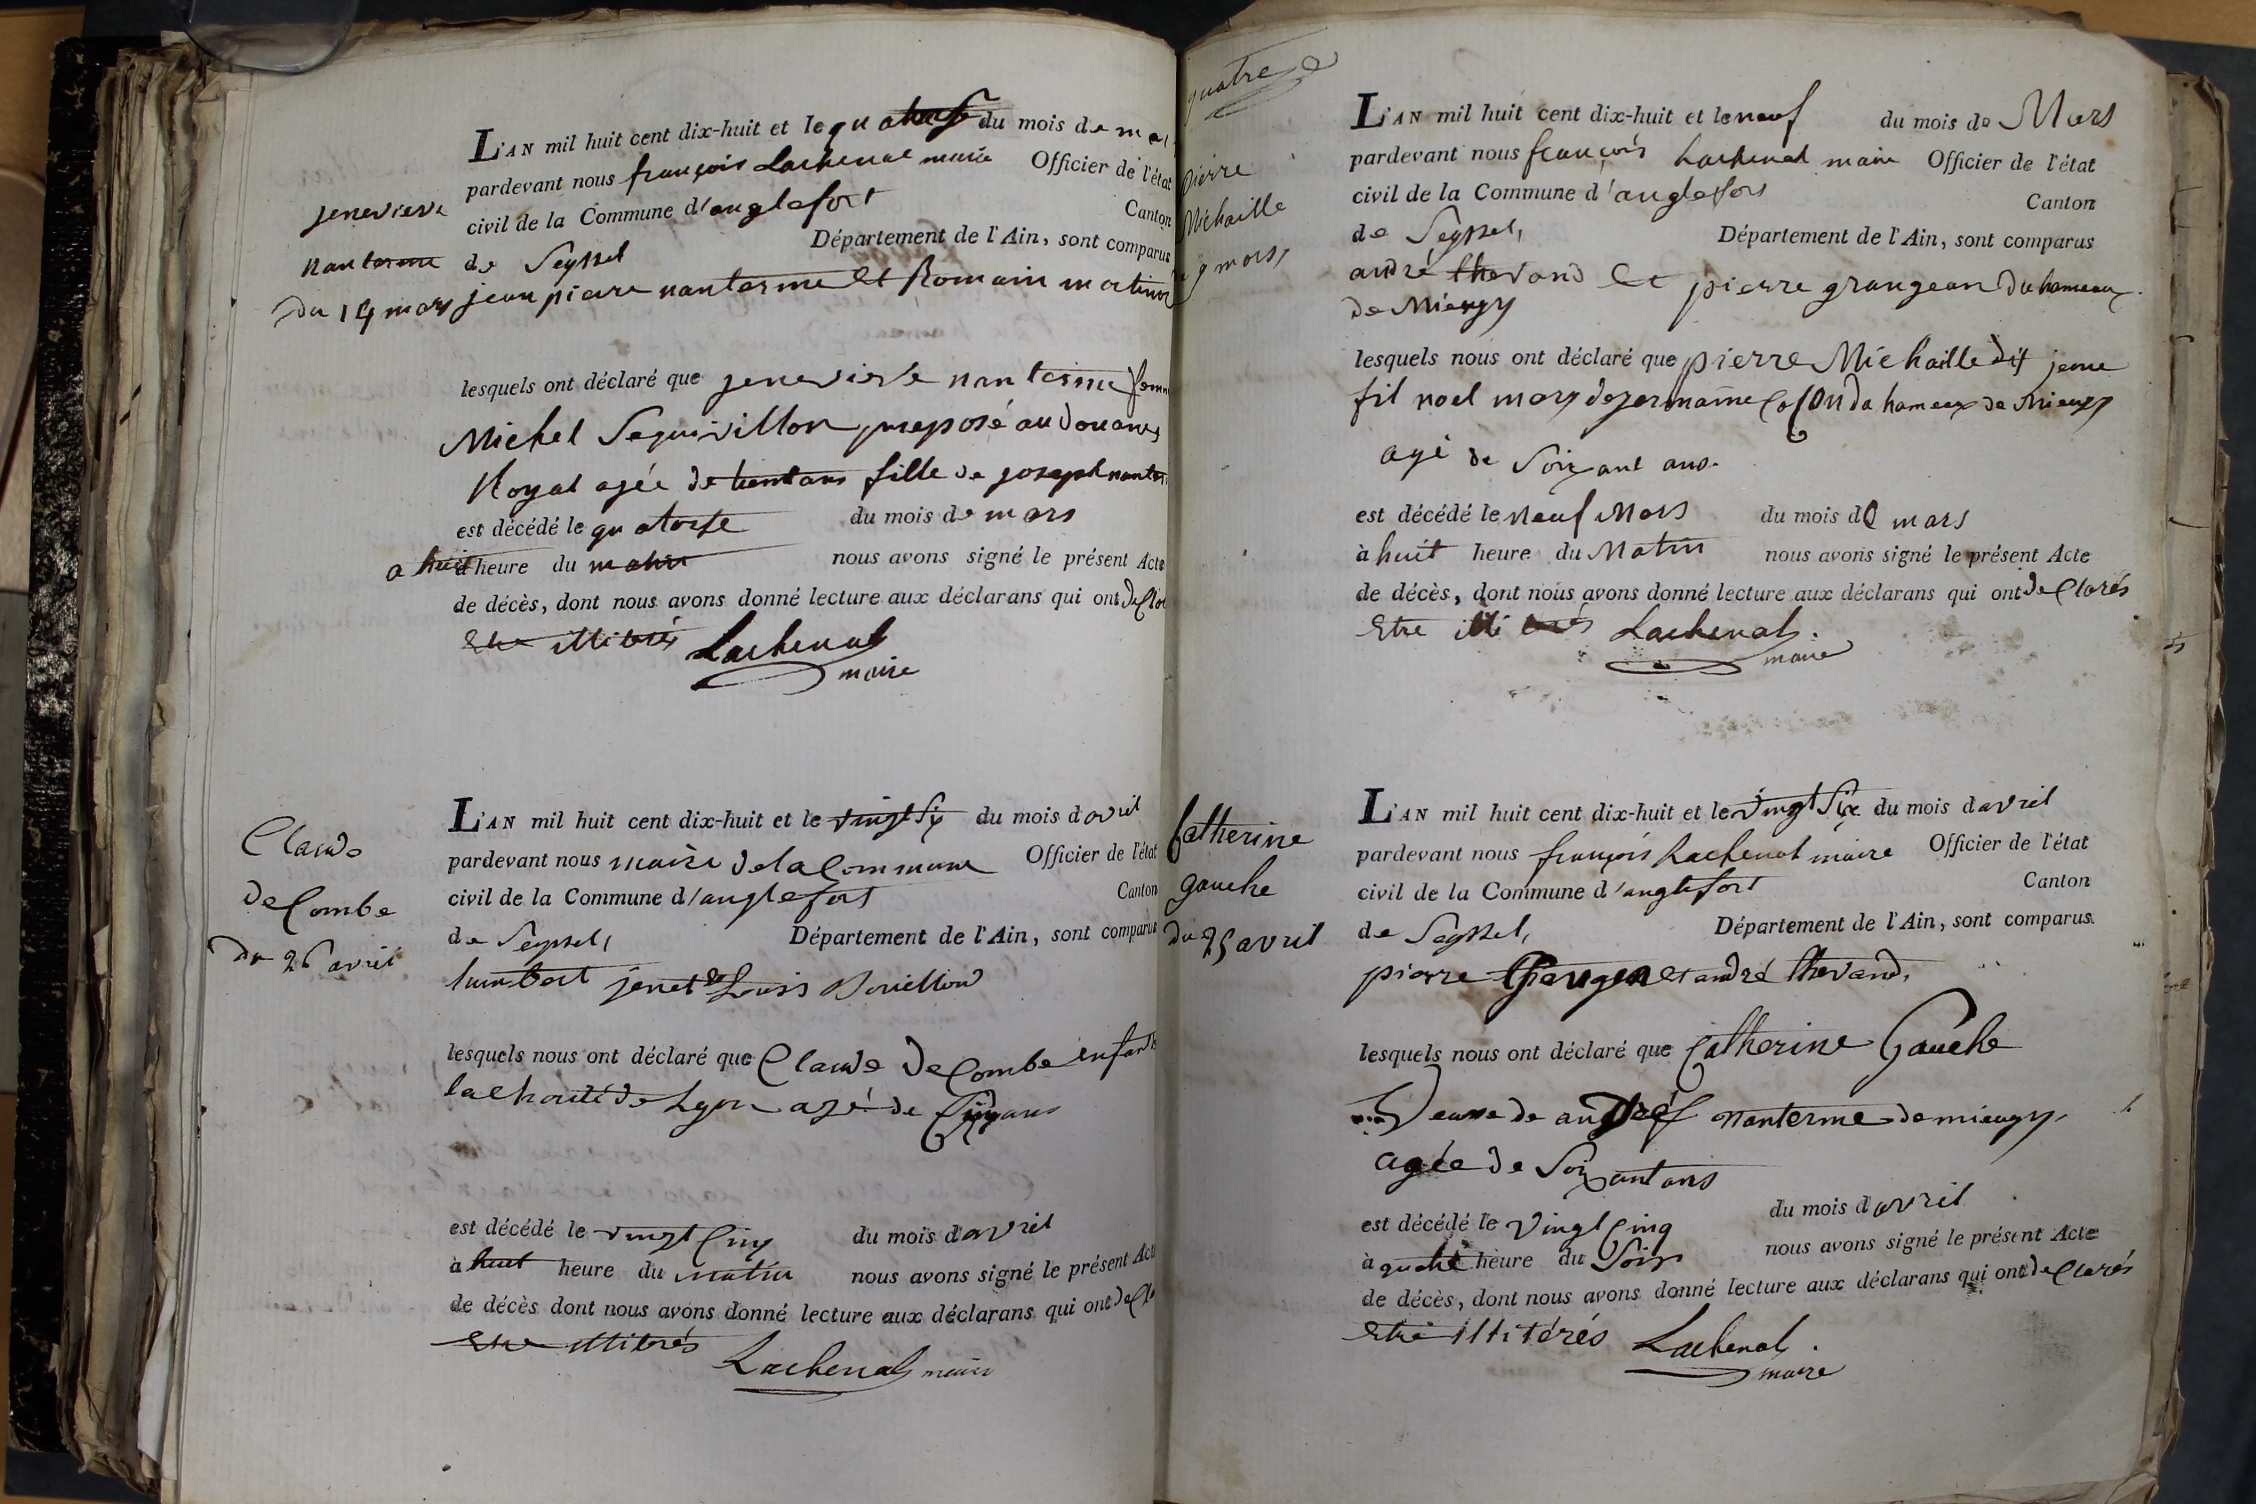 L'AN mil huit cent dix-huit et le quatorse du mois de mar
pardevant nous françois Lachenal maire Officier de l'état
civil de la Commune d'anglefort Canton
de Seyssel Département de l'Ain, sont comparus
jean piere nanterme et Romain
jenevieve
nanterme
du 14 mars
lesquels ont déclaré que jenevieve nanterme femm
Michel Seguivillon preposé au douanes
Royal agée de trentans fille de joseph nanter
est décédé le quatorse du mois de mars
a huit heure du matin nous avons signé le présent Acte
de décès, dont nous avons donné lecture aux déclarans qui ont declar
Etre illiterés Lachenal
maire
Claude
deCombe
du 26 avril
L'AN mil huit cent dix-huit et le vingt Six du mois d'avril
pardevant nous maire de la Commune Officier de l'état
civil de la Commune d'anglefort Canton
de Seyssel, Département de l'Ain, sont comparus
humbert jenet et Louis Bouillod
lesquels nous ont déclaré que Claude deCombe enfant de
la Charité de Lyon agé de ans
est décédé le vingt Cinq du mois d'avril
à huit heure du matin nous avons signé le présent Acte
de décès dont nous avons donné lecture aux déclarans qui ont decla
Etre illiterés
Lachenal maire
quatre
pierre
Michaille
9 mars,
L'AN mil huit cent dix-huit et le neuf du mois de Mars
pardevant nous françois Lachenal maire Officier de l'état
civil de la Commune d'anglefort Canton
de Seyssel, Département de l'Ain, sont comparus
andré thevand Et pierre grangean du hameaux
de Mieugy
lesquels nous ont déclaré que pierre Michaille dit jeune
fil noel mary de jermaine du hameaux de Mieugy
agé de Soixant ans.
est décédé le neuf Mars du mois de mars
à huit heure du Matin nous avons signé le présent Acte
de décès, dont nous avons donné lecture aux déclarans qui ont deClarés
Etre illiterés Lachenal.
maire
Catherine
gauche
du 25 avril
L'AN mil huit cent dix-huit et le vingt Six du mois d'avril
pardevant nous françois Lachenal maire Officier de l'état
civil de la Commune d'anglefort Canton
de Seyssel, Département de l'Ain, sont comparus.
pierre et andré thevand,
lesquels nous ont déclaré que Catherine Gauche
Veuve de andré nanterme de mieugy,
agée de Soixantans
est décédé le vingt Cinq du mois d'avril
à quatre heure du Soir nous avons signé le présent Acte
de décès, dont nous avons donné lecture aux déclarans qui ont deClarés
Etre illitérés Lachenal.
maire